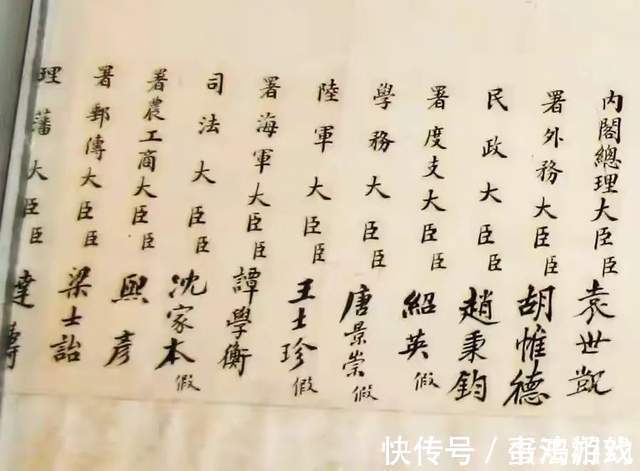 內閣總理大臣臣袁世凱
署外務大臣臣胡惟德
民政大臣臣趙秉鈞
署度支大臣臣紹英假
學務大臣臣唐景崇假
陸軍大臣臣王士珍假
署海軍大臣臣譚學衡
司法大臣臣沈家本假
署農工商大臣臣熙彥
署郵傳大臣臣梁士詒
理藩大臣臣達壽
快传号/蛋鸿游戏